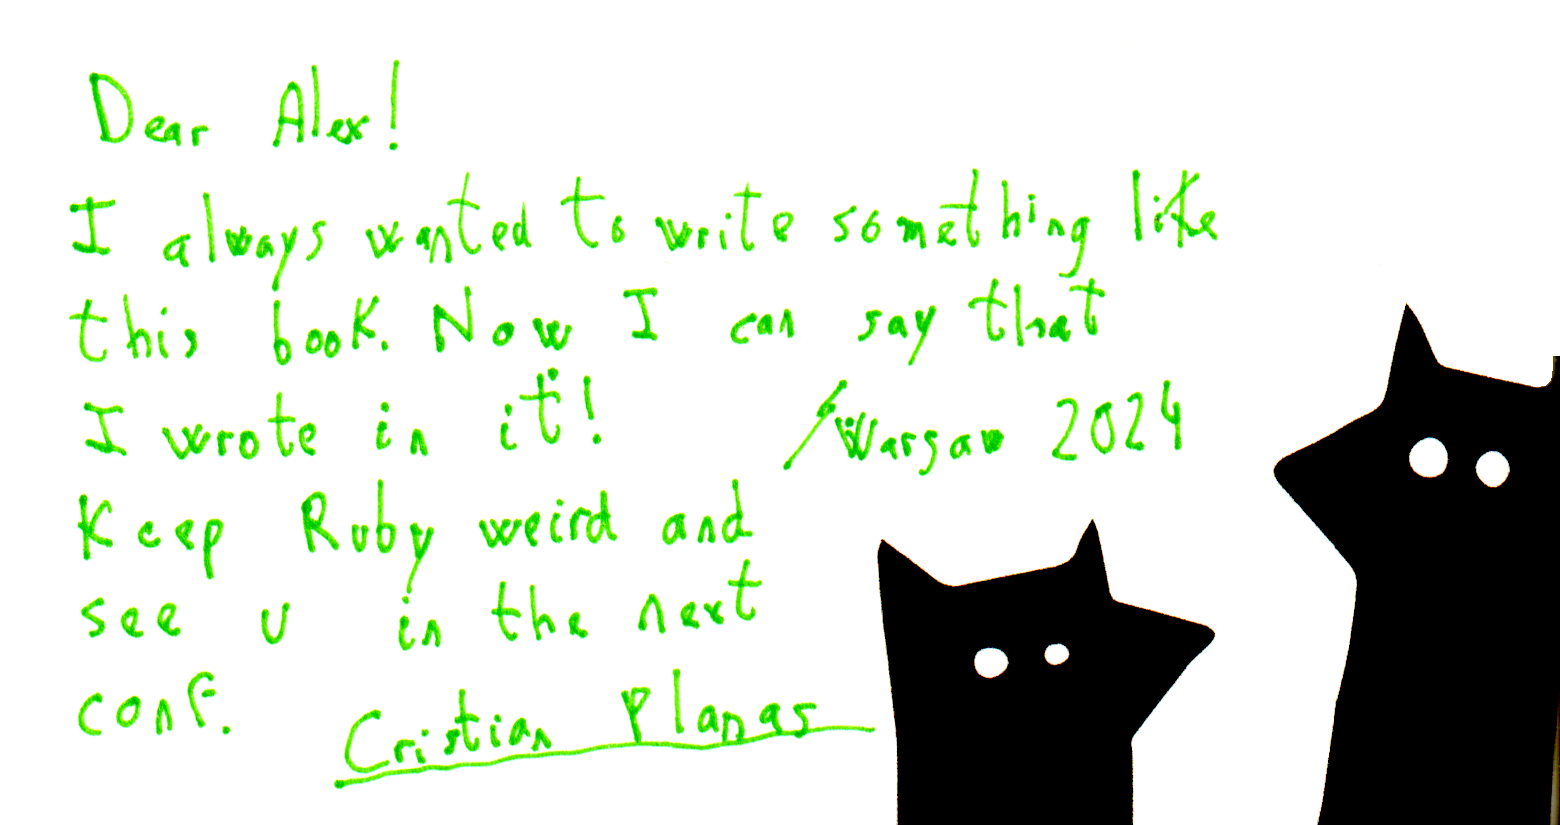 Dear Alex!
I always wanted to write something like
this book. Now I can say that
I wrote in it!
/Warsaw 2024
Keep Ruby weird and
see u in the next
conf.
Cristian Planas